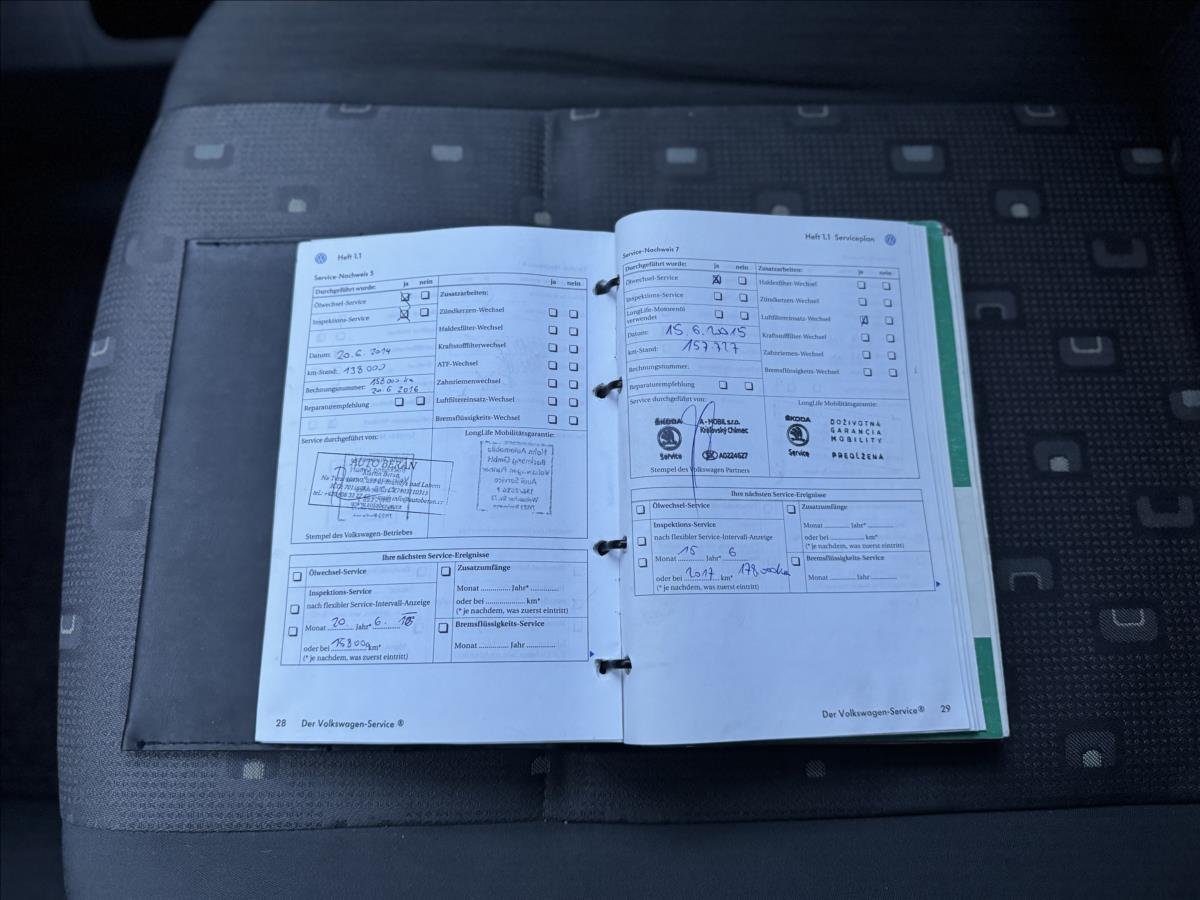 Heft 1.1
Service-Nachweis 5
Durchgeführt wurde: ja nein
Ölwechsel-Service
Inspektions-Service
Datum: 20.6.2014
km-Stand: 138000
Rechnungsnummer: 158000 km
20.6 2016
Reparaturempfehlung
ja nein
Zusatzarbeiten:
Zündkerzen-Wechsel
Haldexfilter-Wechsel
Kraftstofffilterwechsel
ATF-Wechsel
Zahnriemenwechsel
Luftfiltereinsatz-Wechsel
Bremsflüssigkeits-Wechsel
Service durchgeführt von:
AUTO BERAN
Stempel des Volkswagen-Betriebes
LongLife Mobilitätsgarantie:
Ihre nächsten Service-Ereignisse
Ölwechsel-Service
Inspektions-Service
nach flexibler Service-Intervall-Anzeige
Monat 20. Jahr* 6.
oder bei 158000 km*
(* je nachdem, was zuerst eintritt)
Zusatzumfänge
Monat .............. Jahr* ..............
oder bei .................... km*
(* je nachdem, was zuerst eintritt)
Bremsflüssigkeits-Service
Monat ............... Jahr ...............
28 Der Volkswagen-Service ®
Heft 1.1 Serviceplan
Service-Nachweis 7
Durchgeführt wurde: ja nein
Ölwechsel-Service
Inspektions-Service
LongLife-Motorenöl
verwendet
Datum: 15.6.2015
km-Stand: 157.727
Rechnungsnummer:
Reparaturempfehlung
Zusatzarbeiten: ja nein
Haldexfilter-Wechsel
Zündkerzen-Wechsel
Luftfiltereinsatz-Wechsel
Kraftstofffilter-Wechsel
Zahnriemen-Wechsel
Bremsflüssigkeits-Wechsel
Service durchgeführt von:
ŠKODA
Service
A-MOBIL s.r.o.
Kráľovský Chlmec
AD224627
Stempel des Volkswagen Partners
LongLife Mobilitätsgarantie:
ŠKODA
Service
DOŽIVOTNÁ
GARANCIA
MOBILITY
PREDĹŽENÁ
Ihre nächsten Service-Ereignisse
Ölwechsel-Service
Inspektions-Service
nach flexibler Service-Intervall-Anzeige
Monat 15 Jahr* 6
oder bei 2017 km* 178
(* je nachdem, was zuerst eintritt)
Zusatzumfänge
Monat ............... Jahr* ...............
oder bei .................... km*
(* je nachdem, was zuerst eintritt)
Bremsflüssigkeits-Service
Monat ............... Jahr ...............
Der Volkswagen-Service® 29